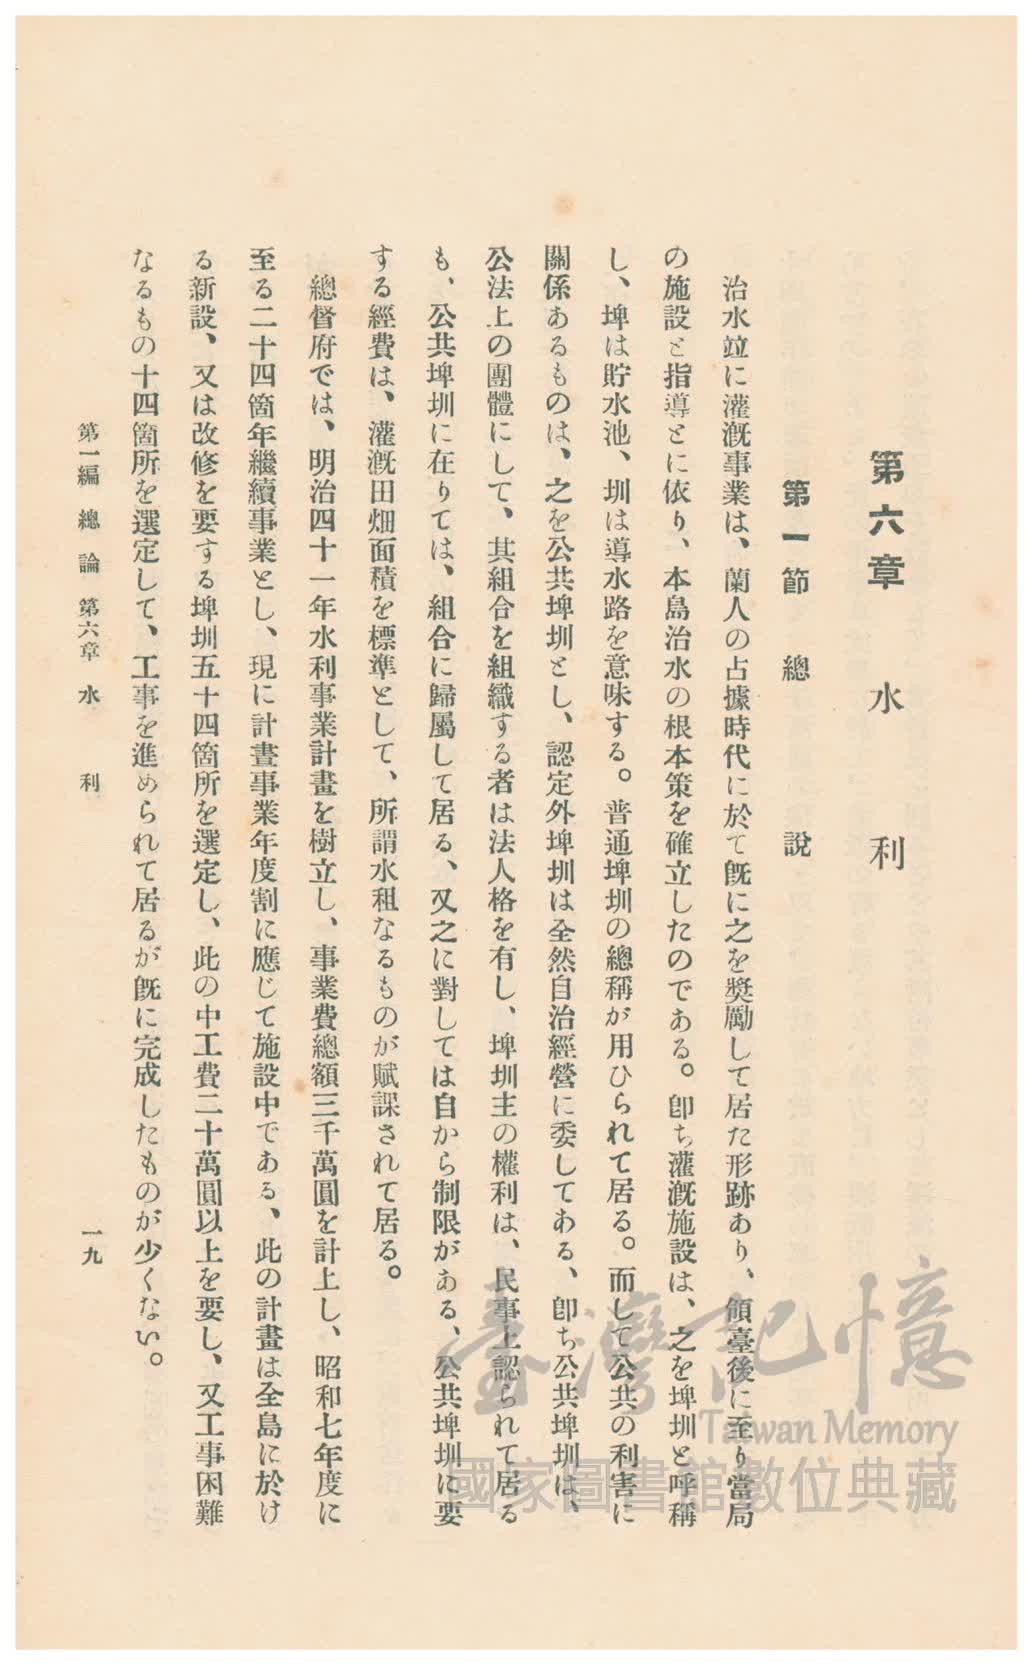 第六章　水利
第一節　總說
治水竝に灌漑事業は、蘭人の占據時代に於て旣に之を奬勵して居た形跡あり、領臺後に至り當局
の施設と指導とに依り、本島治水の根本策を確立したのである。卽ち灌漑施設は、之を埤圳と呼稱
し、埤は貯水池、圳は導水路を意味する。普通埤圳の總稱が用ひられて居る。而して公共の利害に
關係あるものは、之を公共埤圳とし、認定外埤圳は全然自治經營に委してある、卽ち公共埤圳は、
公法上の團體にして、其組合を組織する者は法人格を有し、埤圳主の權利は、民事上認られて居る
も、公共埤圳に在りては、組合に歸屬して居る、又之に對しては自から制限がある、公共埤圳に要
する經費は、灌漑田畑面積を標準として、所謂水租なるものが賦課されて居る。
總督府では、明治四十一年水利事業計畫を樹立し、事業費總額三千萬圓を計上し、昭和七年度に
至る二十四箇年繼續事業とし、現に計畫事業年度割に應じて施設中である、此の計畫は全島に於け
る新設、又は改修を要する埤圳五十四箇所を選定し、此の中工費二十萬圓以上を要し、又工事困難
なるもの十四箇所を選定して、工事を進められて居るが旣に完成したものが少くない。
第一編　總論　第六章　水利
一九
臺灣記憶
Taiwan Memory
國家圖書館數位典藏